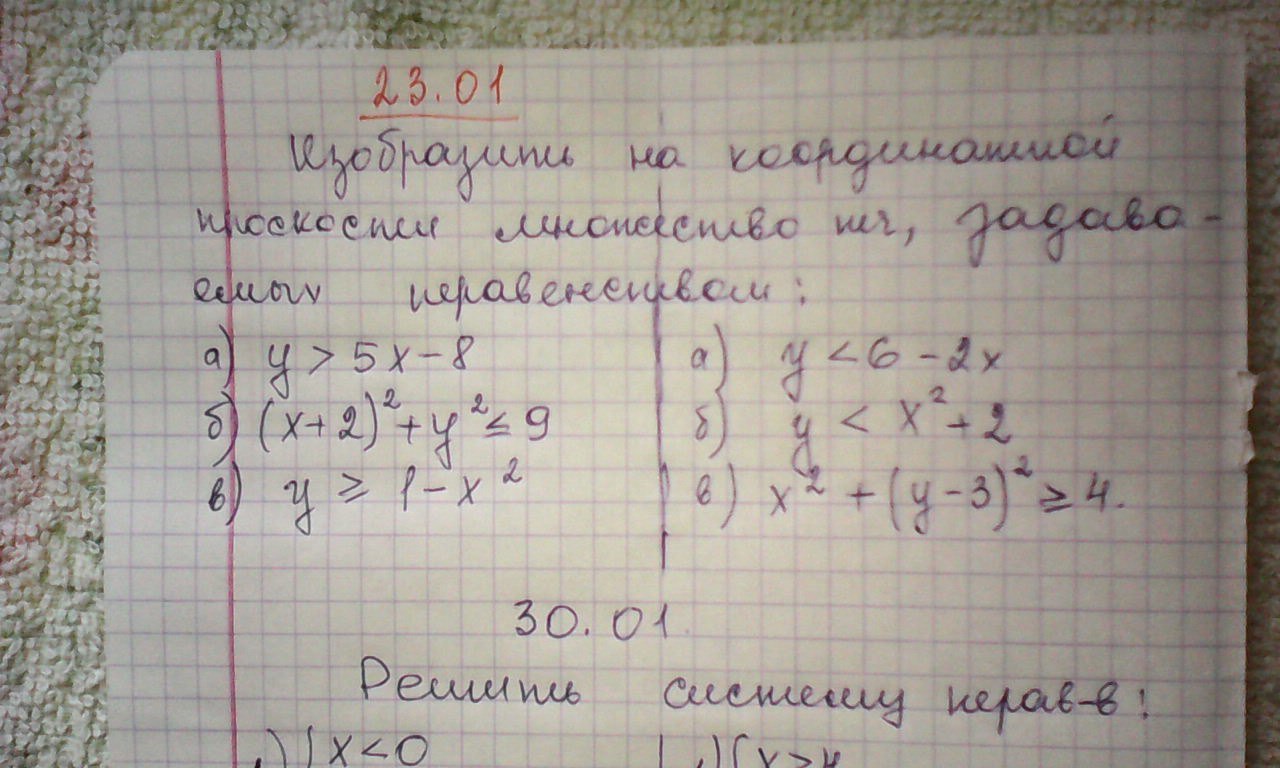 23.01
Изобразить на координатной
проскости множество тч, задава-
емых неравенством:
а) y > 5x - 8
б) (x+2)² + y² ≤ 9
в) y ≥ 1 - x²
а) y < 6 - 2x
б) y < x² + 2
в) x² + (y-3)² ≥ 4.
30.01
Решить систему нерав-в:
x < 0